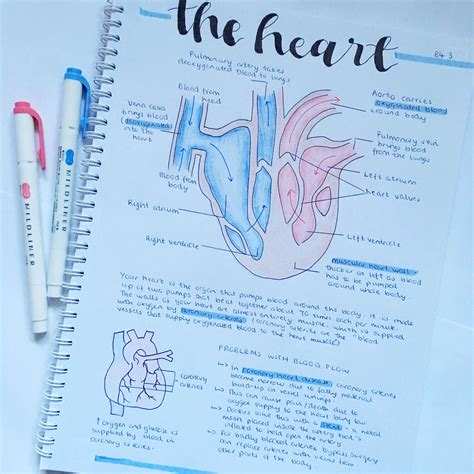 the heart
B4.3
Pulmonary artery takes
deoxygenated blood to lungs
Blood from
head
Aorta carries
oxygenated blood
around body
Vena cava
brings blood
(deoxygenated)
into the
heart
Pulmonary vein
brings blood
from the lungs
Left atrium
Heart valves
Blood from
body
Right atrium
Left ventricle
Right ventricle
muscular heart wall -
thicker on left as blood
has to be pumped
around whole body
Your heart is the organ that pumps blood around the body. It is made
up of two pumps that beat together about 70 times each per minute.
The walls of your heart are almost entirely muscle, which is supplied
with oxygen by coronary arteries (coronary arteries are the blood
vessels that supply oxygenated blood to the heart muscle)
coronary
arteries
↑ oxygen and glucose is
supplied by blood in
coronary arteries.
PROBLEMS WITH BLOOD FLOW
↳ In coronary heart disease coronary arteries
become narrow due to fatty material
build-up on vessel linings
↳ This can cause pain/death due to
oxygen supply to the heart being low
↳ Doctors solve this with a stent - a metal
mesh placed inside the artery that's
inflated to hold open the artery
↳ For badly blocked arteries bypass surgery
can replace arteries with veins from
other parts of the body.
MILDLINER
MILDLINER